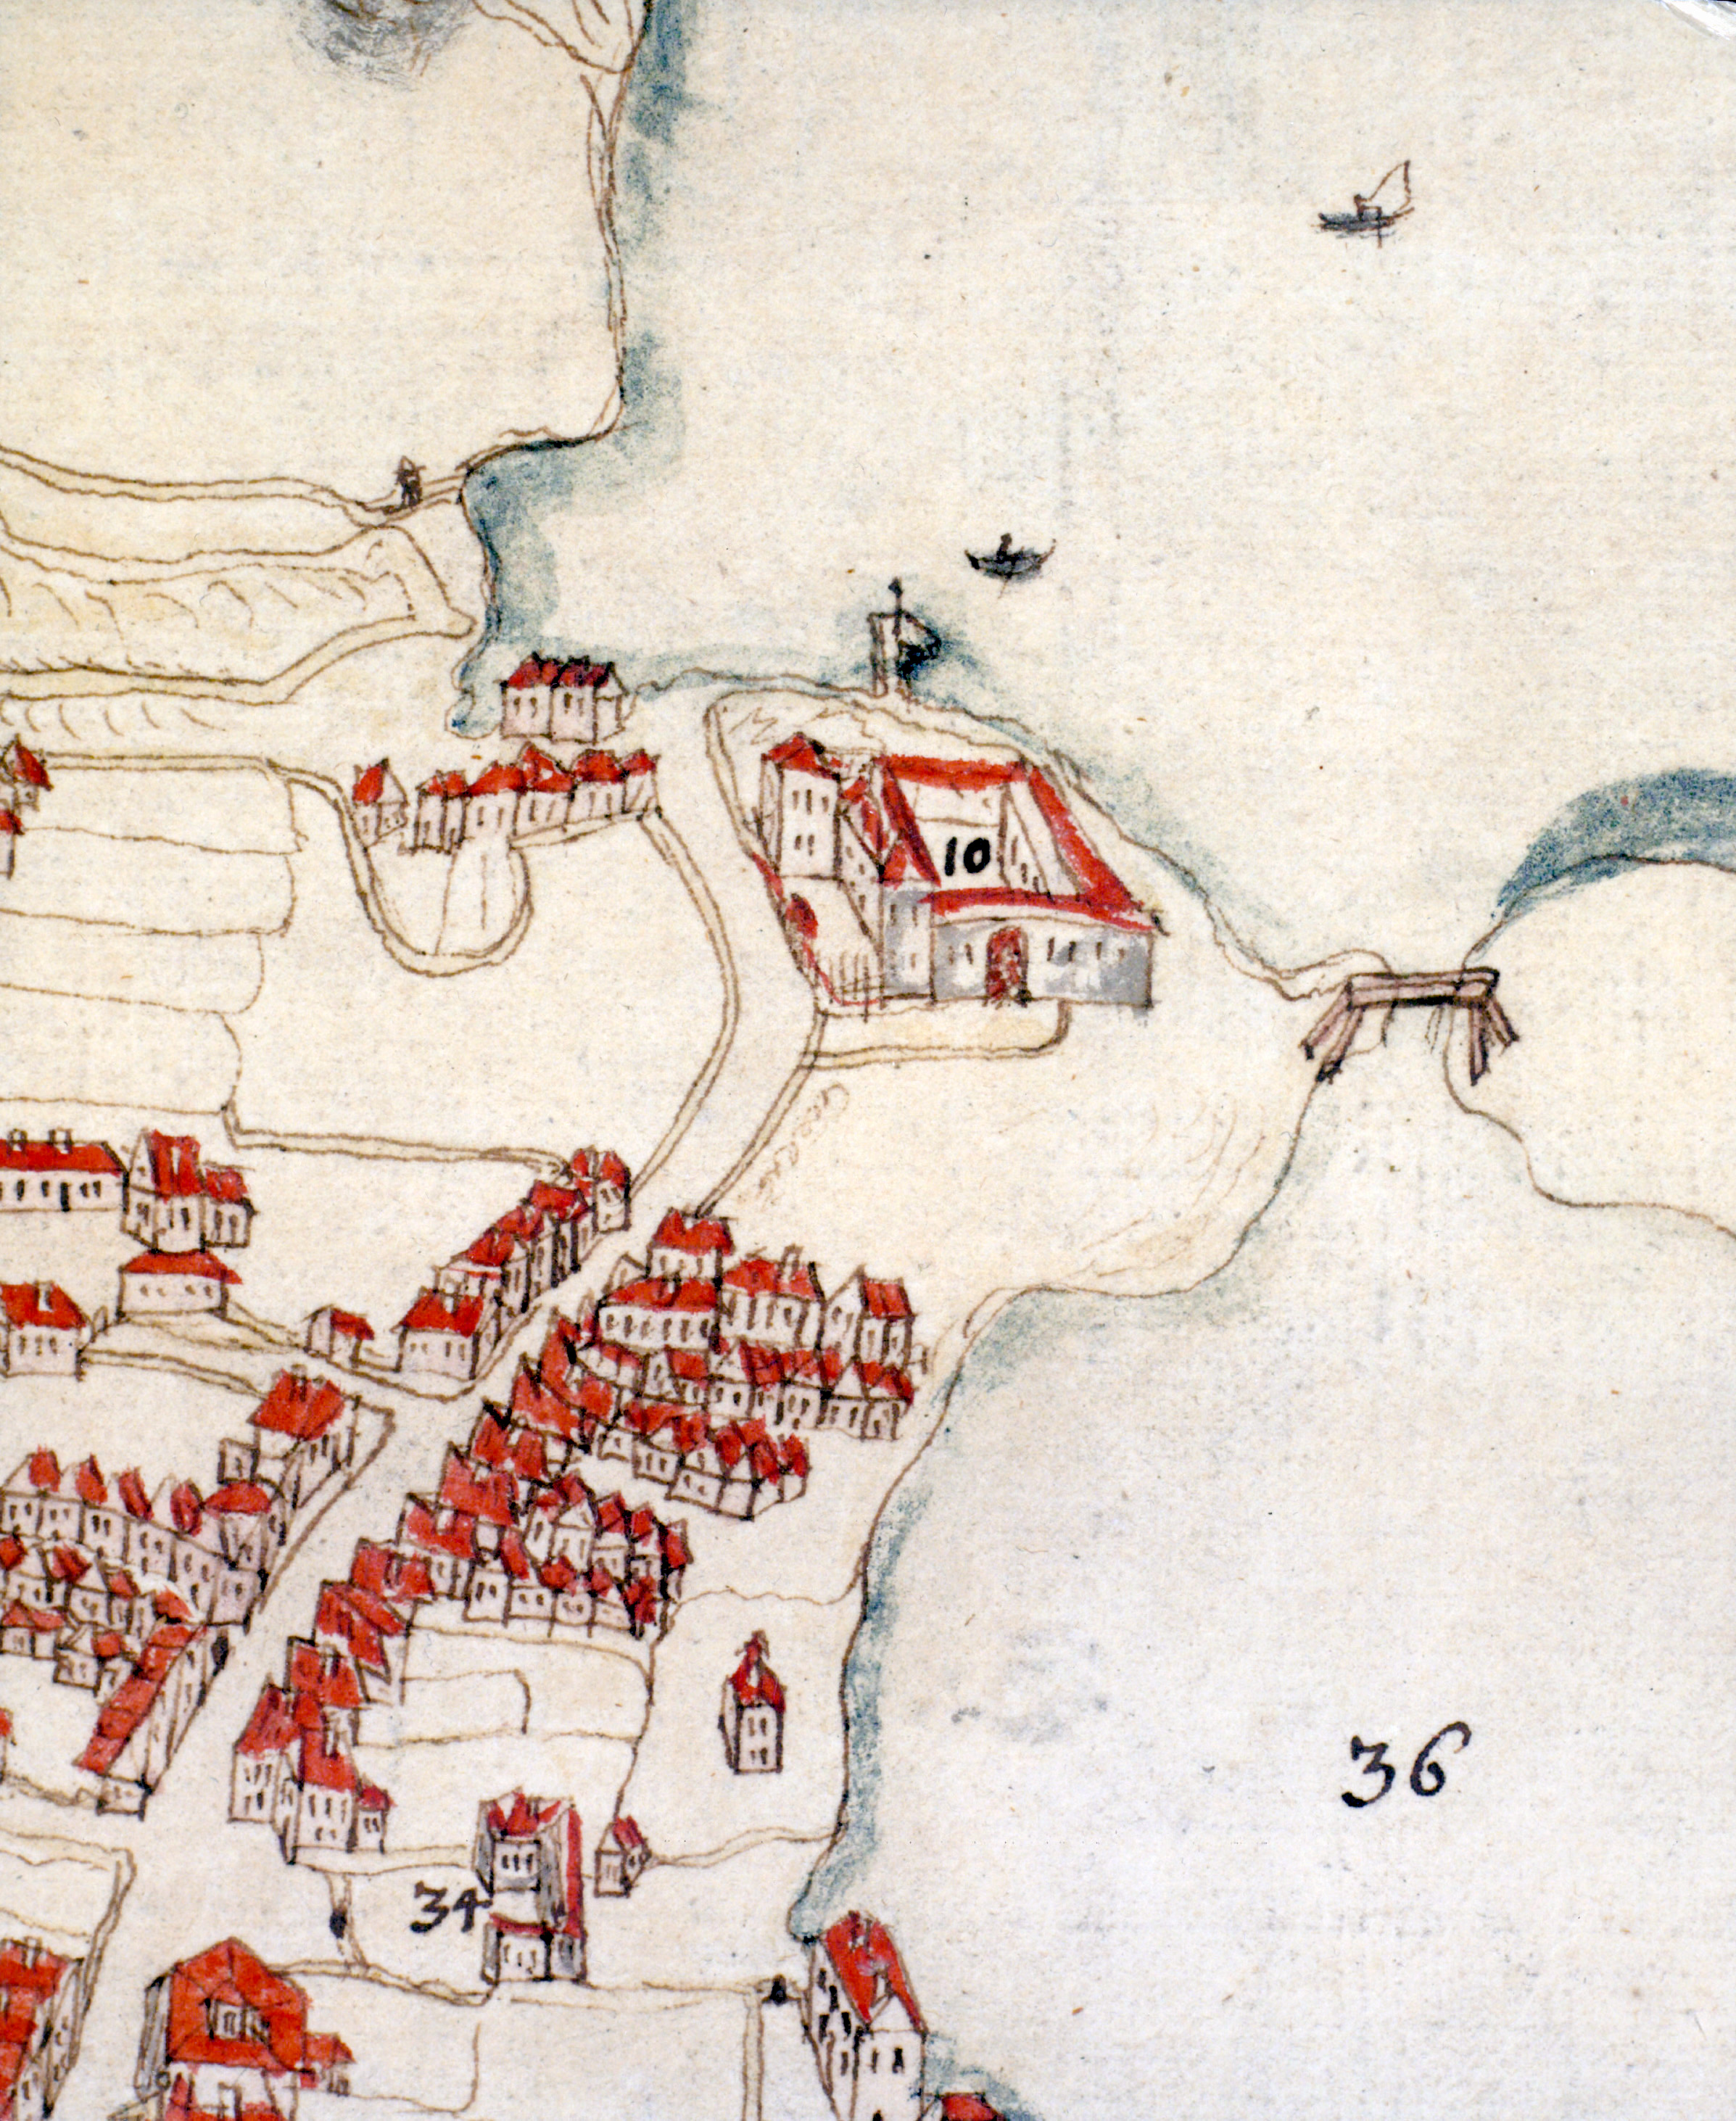 10
36
34